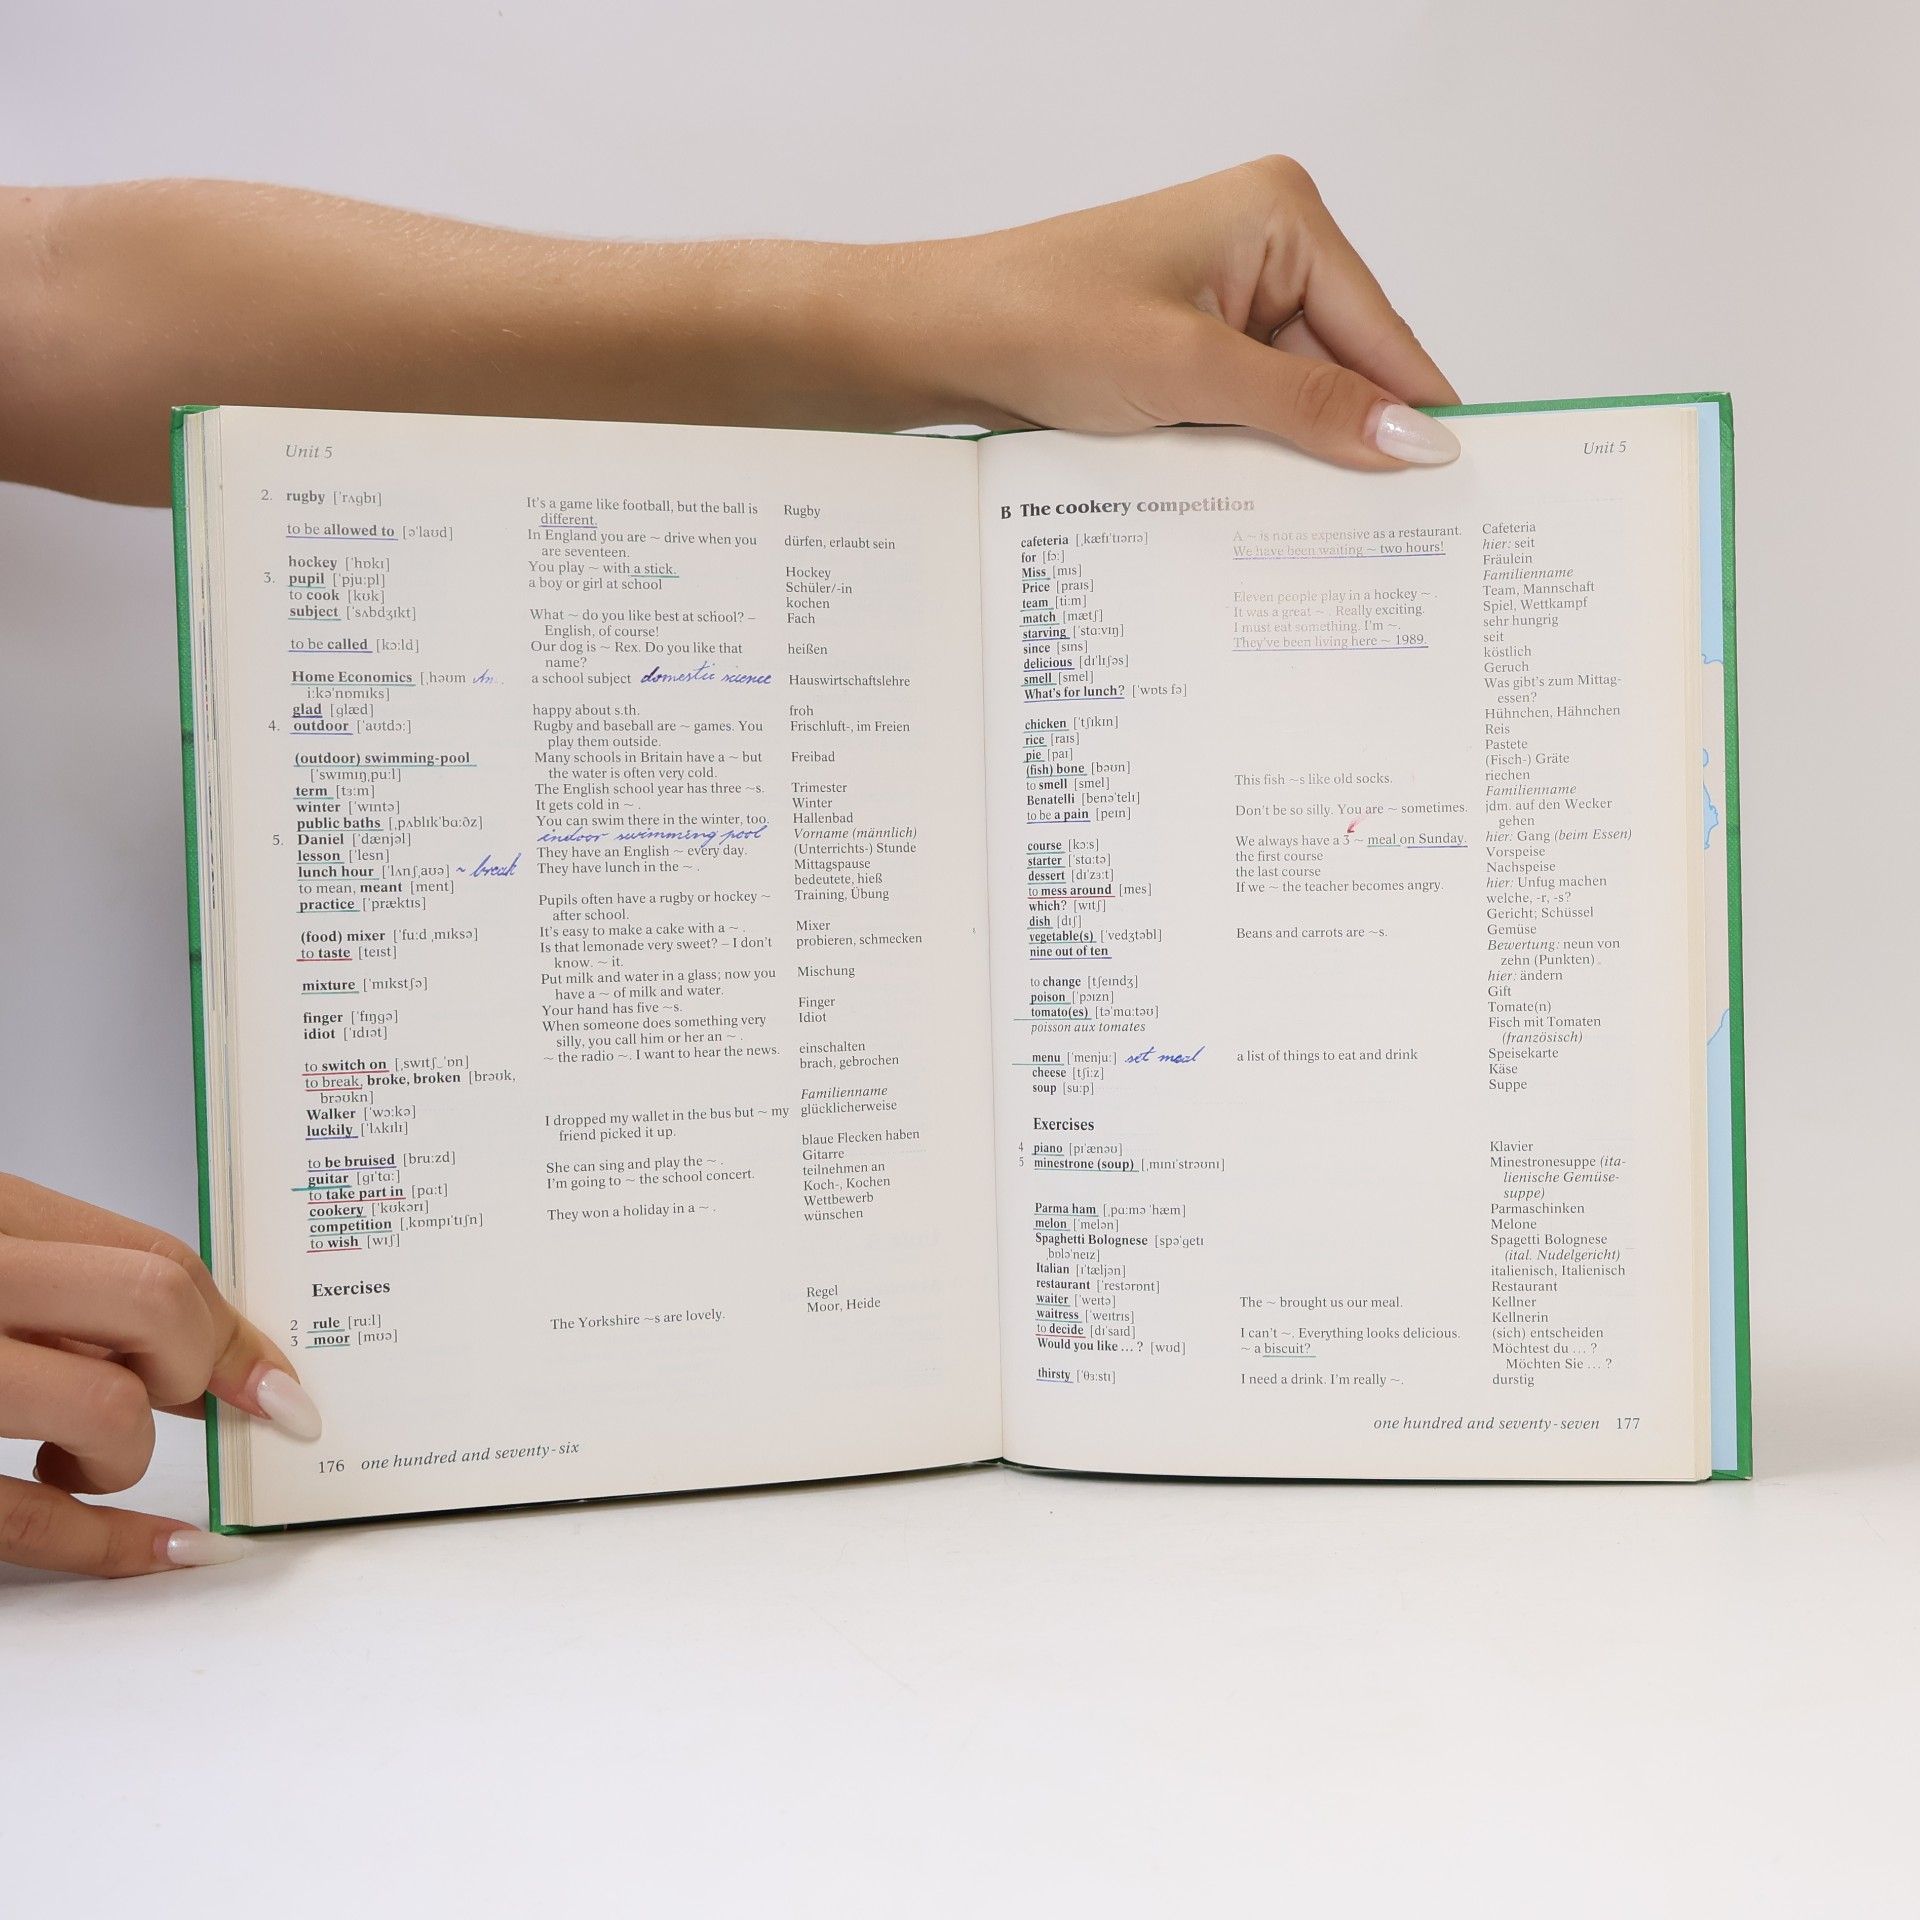 Unit 5
2. rugby ['rʌgbɪ] It's a game like football, but the ball is Rugby
different.
to be allowed to [ə'laʊd] In England you are ~ drive when you dürfen, erlaubt sein
are seventeen.
hockey ['hɒkɪ] You play ~ with a stick. Hockey
3. pupil ['pju:pl] a boy or girl at school Schüler/-in
to cook [kʊk] kochen
subject ['sʌbdʒɪkt] What ~ do you like best at school? – Fach
English, of course!
to be called [kɔ:ld] Our dog is ~ Rex. Do you like that heißen
name?
Home Economics [ˌhəʊm a school subject domestic science Hauswirtschaftslehre
i:kə'nɒmɪks]
glad [glæd] happy about s.th. froh
4. outdoor ['aʊtdɔ:] Rugby and baseball are ~ games. You Frischluft-, im Freien
play them outside.
(outdoor) swimming-pool Many schools in Britain have a ~ but Freibad
['swɪmɪŋˌpu:l] the water is often very cold.
term [tɜ:m] The English school year has three ~s. Trimester
winter ['wɪntə] It gets cold in ~ . Winter
public baths [ˌpʌblɪk'bɑ:ðz] You can swim there in the winter, too. Hallenbad
5. Daniel ['dænjəl] indoor swimming pool Vorname (männlich)
lesson ['lesn] They have an English ~ every day. (Unterrichts-) Stunde
lunch hour ['lʌnʃˌaʊə] ~ break They have lunch in the ~ . Mittagspause
to mean, meant [ment] bedeutete, hieß
practice ['præktɪs] Pupils often have a rugby or hockey ~ Training, Übung
after school.
(food) mixer ['fu:d ˌmɪksə] It's easy to make a cake with a ~ . Mixer
to taste [teɪst] Is that lemonade very sweet? – I don't probieren, schmecken
know. ~ it.
mixture ['mɪkstʃə] Put milk and water in a glass; now you Mischung
have a ~ of milk and water.
finger ['fɪŋgə] Your hand has five ~s. Finger
idiot ['ɪdɪət] When someone does something very Idiot
silly, you call him or her an ~ .
to switch on [ˌswɪtʃ_'ɒn] ~ the radio ~. I want to hear the news. einschalten
to break, broke, broken [brəʊk, brach, gebrochen
brəʊkn]
Walker ['wɔ:kə] Familienname
luckily ['lʌkɪlɪ] I dropped my wallet in the bus but ~ my glücklicherweise
friend picked it up.
to be bruised [bru:zd] blaue Flecken haben
guitar [gɪ'tɑ:] She can sing and play the ~ . Gitarre
to take part in [pɑ:t] I'm going to ~ the school concert. teilnehmen an
cookery ['kʊkərɪ] Koch-, Kochen
competition [ˌkɒmpɪ'tɪʃn] They won a holiday in a ~ . Wettbewerb
to wish [wɪʃ] wünschen
Exercises
2 rule [ru:l] Regel
3 moor [mʊə] The Yorkshire ~s are lovely. Moor, Heide
176 one hundred and seventy-six
Unit 5
B The cookery competition
cafeteria [ˌkæfɪ'tɪərɪə] A ~ is not as expensive as a restaurant. Cafeteria
for [fɔ:] We have been waiting ~ two hours! hier: seit
Miss [mɪs] Fräulein
Price [praɪs] Familienname
team [ti:m] Eleven people play in a hockey ~ . Team, Mannschaft
match [mætʃ] It was a great ~ . Really exciting. Spiel, Wettkampf
starving ['stɑ:vɪŋ] I must eat something. I'm ~. sehr hungrig
since [sɪns] They've been living here ~ 1989. seit
delicious [dɪ'lɪʃəs] köstlich
smell [smel] Geruch
What's for lunch? ['wɒts fə] Was gibt's zum Mittag-
essen?
chicken ['tʃɪkɪn] Hühnchen, Hähnchen
rice [raɪs] Reis
pie [paɪ] Pastete
(fish) bone [bəʊn] (Fisch-) Gräte
to smell [smel] This fish ~s like old socks. riechen
Benatelli [benə'telɪ] Familienname
to be a pain [peɪn] Don't be so silly. You are ~ sometimes. jdm. auf den Wecker
gehen
course [kɔ:s] We always have a 3 ~ meal on Sunday. hier: Gang (beim Essen)
starter ['stɑ:tə] the first course Vorspeise
dessert [dɪ'zɜ:t] the last course Nachspeise
to mess around [mes] If we ~ the teacher becomes angry. hier: Unfug machen
which? [wɪtʃ] welche, -r, -s?
dish [dɪʃ] Gericht; Schüssel
vegetable(s) ['vedʒtəbl] Beans and carrots are ~s. Gemüse
nine out of ten Bewertung: neun von
zehn (Punkten)
to change [tʃeɪndʒ] hier: ändern
poison ['pɔɪzn] Gift
tomato(es) [tə'mɑ:təʊ] Tomate(n)
poisson aux tomates Fisch mit Tomaten
(französisch)
menu ['menju:] set meal a list of things to eat and drink Speisekarte
cheese [tʃi:z] Käse
soup [su:p] Suppe
Exercises
4 piano [pɪ'ænəʊ] Klavier
5 minestrone (soup) [ˌmɪnɪ'strəʊnɪ] Minestronesuppe (ita-
lienische Gemüse-
suppe)
Parma ham [ˌpɑ:mə 'hæm] Parmaschinken
melon ['melən] Melone
Spaghetti Bolognese [spə'getɪ Spagetti Bolognese
ˌbɒlə'neɪz] (ital. Nudelgericht)
Italian [ɪ'tæljən] italienisch, Italienisch
restaurant ['restərɒnt] Restaurant
waiter ['weɪtə] The ~ brought us our meal. Kellner
waitress ['weɪtrɪs] Kellnerin
to decide [dɪ'saɪd] I can't ~. Everything looks delicious. (sich) entscheiden
Would you like ... ? [wʊd] ~ a biscuit? Möchtest du ... ?
Möchten Sie ... ?
thirsty ['θɜ:stɪ] I need a drink. I'm really ~. durstig
one hundred and seventy-seven 177